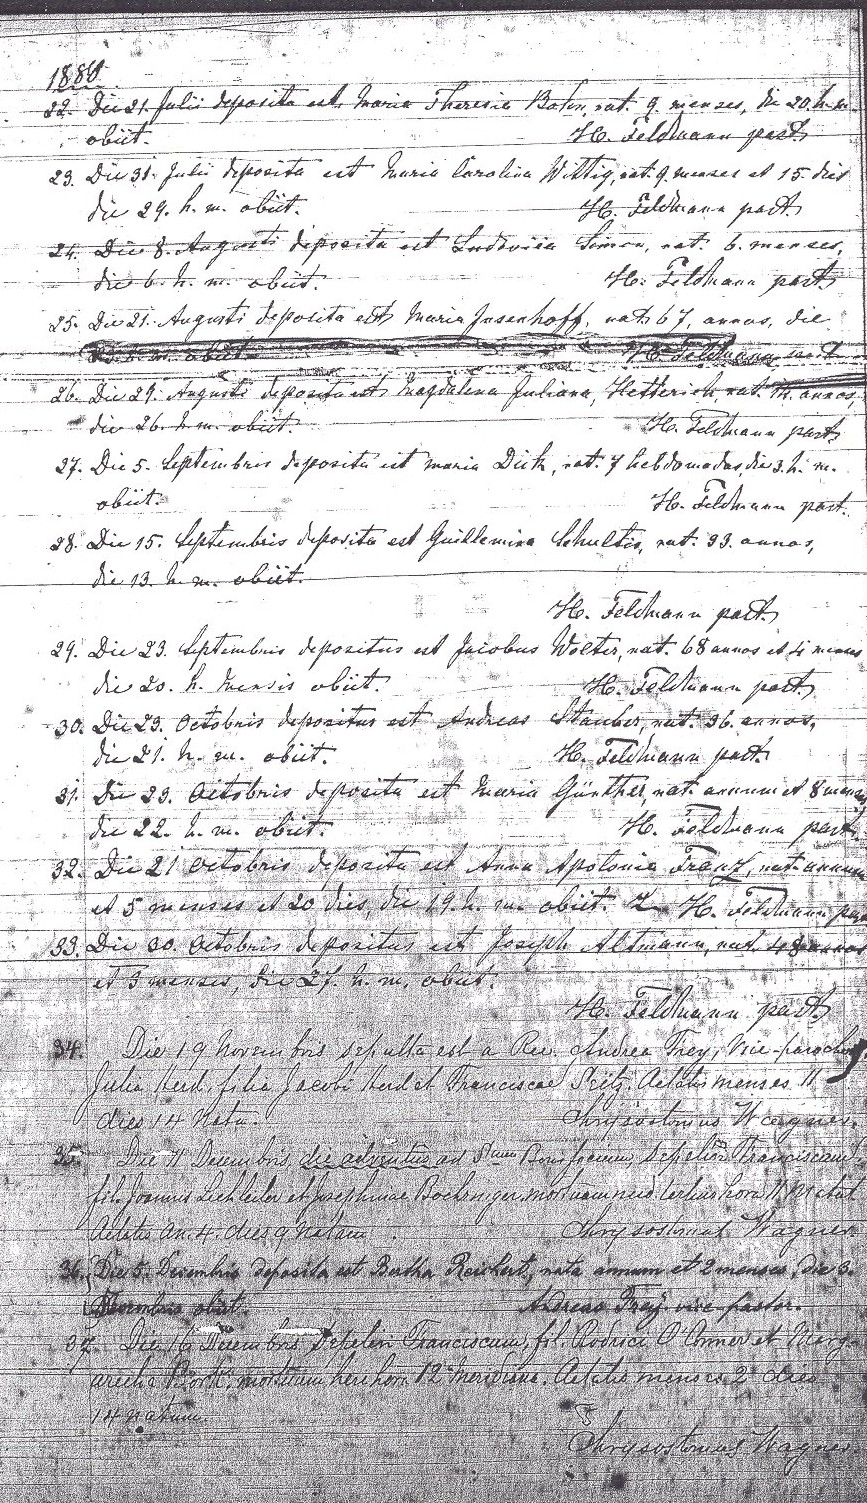 1880
22. Die 21. Julii deposita est Maria Theresia Bohn, nat. 9 menses, die 20. h. m.
obiit. H. Feldmann past.
23. Die 31. Julii deposita est Maria Carolina Wittig, nat. 9 menses et 15 dies
die 29. h. m. obiit. H. Feldmann past.
24. Die 8. Augusti deposita est Ludovica Simon, nat. 6. menses,
die 6. h. m. obiit. H. Feldmann past.
25. Die 21. Augusti deposita est Maria Jusenhoff, nat. 67, annos, die
h. m. obiit. H. Feldmann past
26. Die 29. Augusti deposita est Magdalena Juliana, Hetterich, nat. annos,
die 26. h. m. obiit. H. Feldmann past.
27. Die 5. Septembris deposita est Maria Dick, nat. 7 hebdomadas, die 3. h. m.
obiit. H. Feldmann past.
28. Die 15. Septembris deposita est Guillemina Schultis, nat. 33. annos,
die 13. h. m. obiit.
H. Feldmann past.
29. Die 23. Septembris depositus est Jacobus Wolter, nat. 68 annos et 4 menses
die 20. h. mensis obiit. H. Feldmann past.
30. Die 23. Octobris depositus est Andreas Stauber, nat. 36. annos,
die 21. h. m. obiit. H. Feldmann past.
31. Die 23. Octobris deposita est Maria Günther, nat. annum et 8 menses
die 22. h. m. obiit. H. Feldmann past.
32. Die 21 Octobris deposita est Anna Apolonia Franz, nat. annum
et 5 menses et 20 dies, die 19. h. m. obiit. H. Feldmann past
33. Die 30. Octobris depositus est Joseph Altmann, nat. 48 annos
et 3 menses, die 27. h. m. obiit.
H. Feldmann past.
34. Die 19 Novembris sepulta est a Rev. Andrea Frey, Vice-parocho,
Julia Herd. filia Jacobi Herd et Franciscae Seitz. Aetatis menses 11
dies 14 nata. Chrysostomus Wagner.
35. Die 11 Decembris, die adventus ad Stum Bonifacium, Sepelivi Franciscam
fil. Joannis Lechleiter et Josephinae Boehringer, hora 11
Aetatis an. 4. dies 9 natam. Chrysostomus Wagner
36. Die 5. Decembris deposita est Bertha Reichert, nata annum et 2 menses, die 3.
obiit. Andreas Frey vice-pastor.
37. Die 16 Decembris Sepelivi Franciscum, fil. Rodrici O'Conner et Marg-
Bork, mortuum heri hora 12 meridiana. Aetatis menses 2 dies
14 natum.
Chrysostomus Wagner